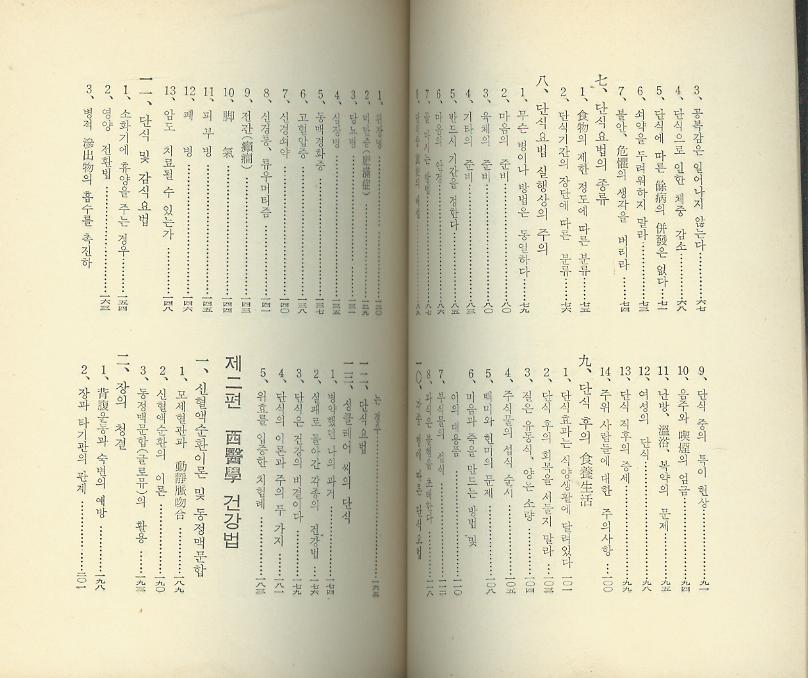 3、공복감은 일어나지 않는다……六七
4、단식으로 인한 체중 감소……六八
5、단식에 따른 餘病의 併發은 없다…七一
6、쇠약을 두려워하지 말라……七三
7、불안、危懼의 생각을 버리라……七四
七、단식요법의 종류
1、食物의 제한 정도에 따른 분류……七五
2、단식기간의 장단에 따른 분류……七六
八、단식요법 실행상의 주의
1、무슨 병이나 방법은 동일하다……七九
2、마음의 준비……八〇
3、육체의 준비……八〇
4、기타의 준비……八二
5、반드시 기간을 정한다……八五
6、마음의 안정……八六
7、물 마시는 방법……八七
9、단식 중의 특이 현상……九一
10、음주와 喫煙의 엄금……九四
11、난방、溫浴、복약의 문제……九五
12、여성의 단식……九八
13、단식 직후의 증세……九九
14、주위 사람들에 대한 주의사항…一〇〇
九、단식 후의 食養生活
1、단식효과는 식양생활에 달려있다…一〇一
2、단식 후의 회복을 서둘지 말라…一〇三
3、짙은 유동식、양은 소량……一〇四
4、주식물의 섭식 순서……一〇五
5、백미와 현미의 문제……一〇八
6、미음과 죽을 만드는 방법 및
이의 대용품……一一〇
7、부식물의 섭식……一一二
8、과식은 불행을 초래한다……一一八
一〇、각종 병에 따른 단식요법
1、위장병……一二〇
2、비만증(肥滿症)……一二九
3、당뇨병……一三一
4、심장병……一三五
5、동맥경화증……一三七
6、고혈압증……一三八
7、신경쇠약……一四〇
8、신경통、류우머티즘……一四一
9、전간(癲癎)……一四三
10、脚 氣……一四四
11、피부병……一四五
12、폐 병……一四六
13、암도 치료될 수 있는가……一四八
一一、단식 및 감식요법
1、소화기에 휴양을 주는 경우……一五四
2、영양 전환법……一六三
3、병적 滲出物의 흡수를 촉진하
는 경우……一六五
一二、단식요법
一三、싱클레어 씨의 단식
1、병약했던 나의 과거……一七四
2、실패로 돌아간 각종의 건강법…一七六
3、단식은 건강의 비결이다……一七九
4、단식의 이론과 주의 두 가지……一八一
5、위효를 입증한 치험례……一八三
제二편 西醫學 건강법
一、신혈액순환이론 및 동정맥문합
1、모세혈관과 動靜脈吻合……一八九
2、신혈액순환의 이론……一九〇
3、동정맥문합(글로뮤)의 활용……一九三
二、장의 청결
1、背腹운동과 숙변의 예방……一九八
2、장과 타기관의 관계……二〇一